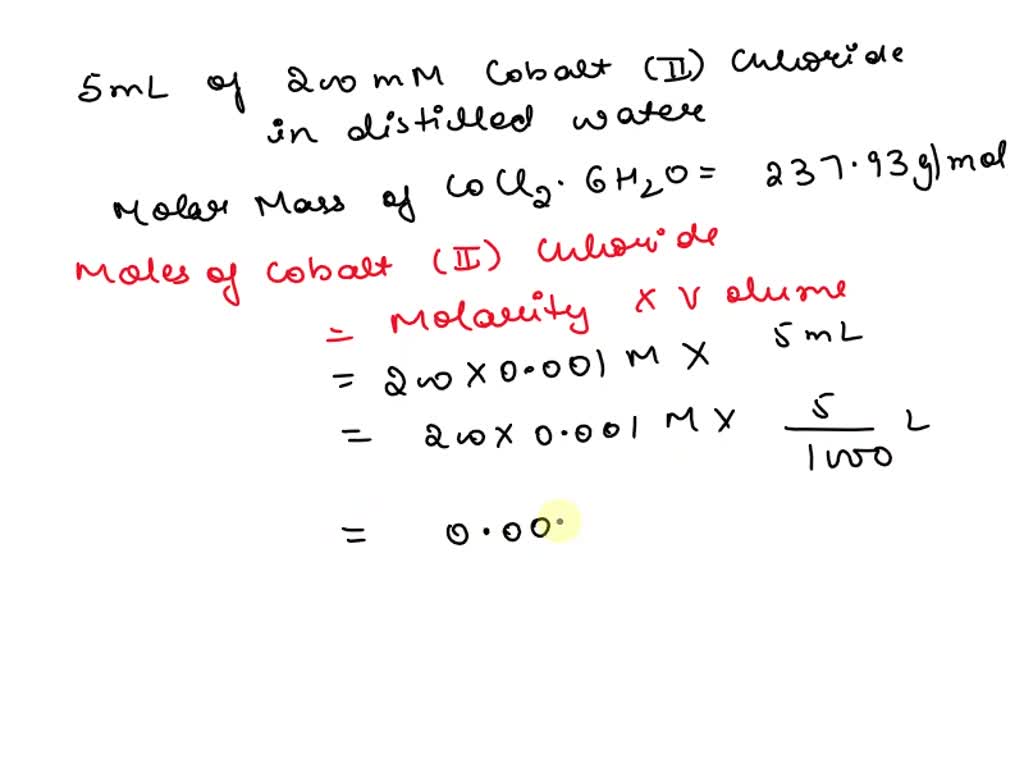 5mL of 200mM Cobalt (II) Chloride
in distilled water
Molar Mass of CoCl2·6H2O= 237.93g/mol
Moles of Cobalt (II) Chloride
= Molarity x Volume
= 200 x 0.001 M x 5mL
= 200 x 0.001 M x 5/1000 L
= 0.00